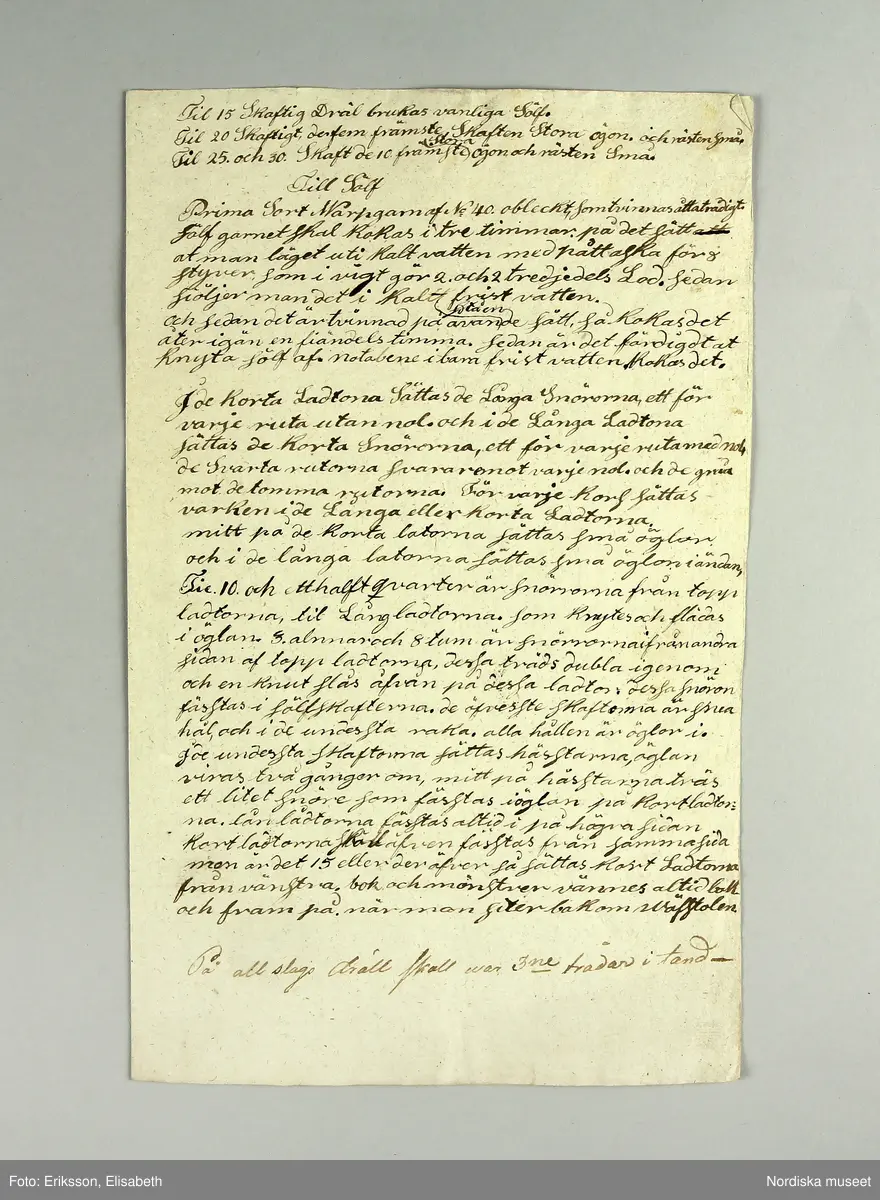 Til 15 Skaftig Dräl brukas vanliga Sölf.
Til 20 Skaftigt de fem främste Skaften Stora ögon. och rästen små.
Til 25. och 30. Skaft de 10 främste stora ögon och rästen Små.
Till Sölf
Prima Sort Warpgarn af No 40. obleckt, som tvinnas åttatrådigt.
Sölf garnet skal kokas i tre timmar. på det sätt att
at man läget uti kalt vatten med påttaska för 8
styver. som i vigt gör 2. och 2 tredjedels Lod. sedan
sköljer man det i kaltt frist vatten.
och sedan det är tvinnad på ståen åvande sätt, så kokas det
åter igän en fiändels timma. sedan är det färdigdt at
knyta sölf af. notabene i bara frist vatten kokas det.
I de korta Ladtona Sättas de Långa Snörorna, ett för
varje ruta utan nol. och i de Långa Ladtona
sättas de korta Snörorna, ett för varje ruta med nol,
de Svarta rutorna svarar emot varje nol. och de gråa
mot de tomma rutorna. För varje kors sättas
varken i de Långa eller korta Ladtorna.
mitt på de korta latorna sättas små öglor
och i de långa latorna sättas små öglor i ändan,
Tie. 10. och ett halft quarter är snörorna från topp
ladtorna, til Långladtorna. som knytes och flädas
i öglan. 3. alnnar och 8 tum är snörrorna ifrån andra
sidan af topp ladtorna, dessa träds dubla igenom
och en knut slås åfvan på dessa ladtor. dessa snören
fässtas i sälfskafterna. de öfresste skaftorna är snea
hål, och i de undessta raka. alla hållen är öglor i.
I de undessta skaftorna sättas hässtarna, öglan
viras två gånger om, mitt på hässtarna träs
ett litet snöre som fässtas i öglan på kortladtor=
na. lån ladtorna fässtas altid i på högra sidan
kortladtorna skall äfven fässtas från samma sida
men är det 15 eller deräfver så sättas kort Ladtorna
från vänstra. bok och mönstrer vännes altid bak
och fram på. när man siter bakom Wäfstolen.
På all slags dräll skall war 3ne trådar i tand —
Foto: Eriksson, Elisabeth
Nordiska museet